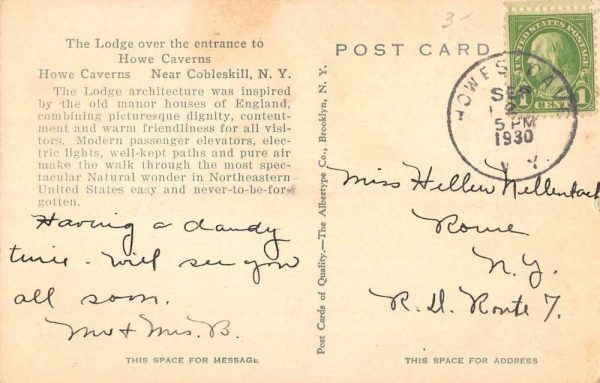 3-
The Lodge over the entrance to
Howe Caverns
Howe Caverns Near Cobleskill, N. Y.
The Lodge architecture was inspired
by the old manor houses of England,
combining picturesque dignity, content-
ment and warm friendliness for all visi-
tors. Modern passenger elevators, elec-
tric lights, well-kept paths and pure air
make the walk through the most spec-
tacular Natural wonder in Northeastern
United States easy and never-to-be-for-
gotten.
Having a dandy
time - will see you
all soon.
Mr & Mrs. B.
THIS SPACE FOR MESSAGE.
Post Cards of Quality.—The Albertype Co., Brooklyn, N. Y.
POST CARD
UNITED STATES POSTAGE
1 CENT 1
HOWES CAVE
SEP
2
5 PM
1930
N. Y.
Miss Hellen
Rome
N. Y.
R. D. Route 7.
THIS SPACE FOR ADDRESS